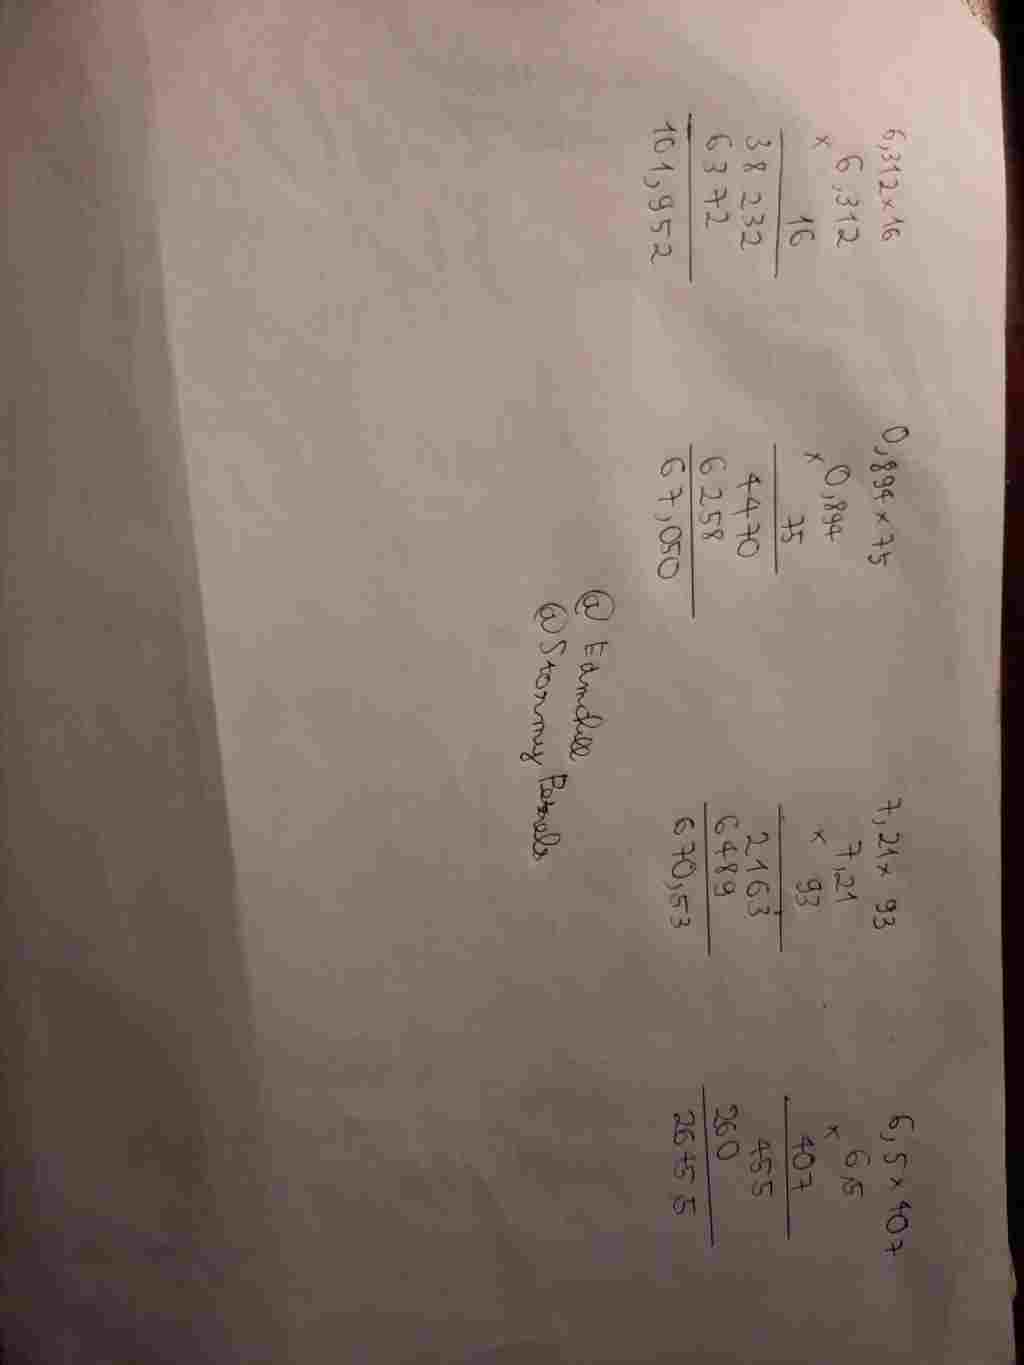 6,312x16
6,312
x 16
38 232
6372
101,952
0,894 x 75
0,894
x 75
4470
6258
67,050
7,21x 93
7,21
x 93
2163
6489
670,53
6,5x407
6,5
x 407
455
260
@
@Stormy